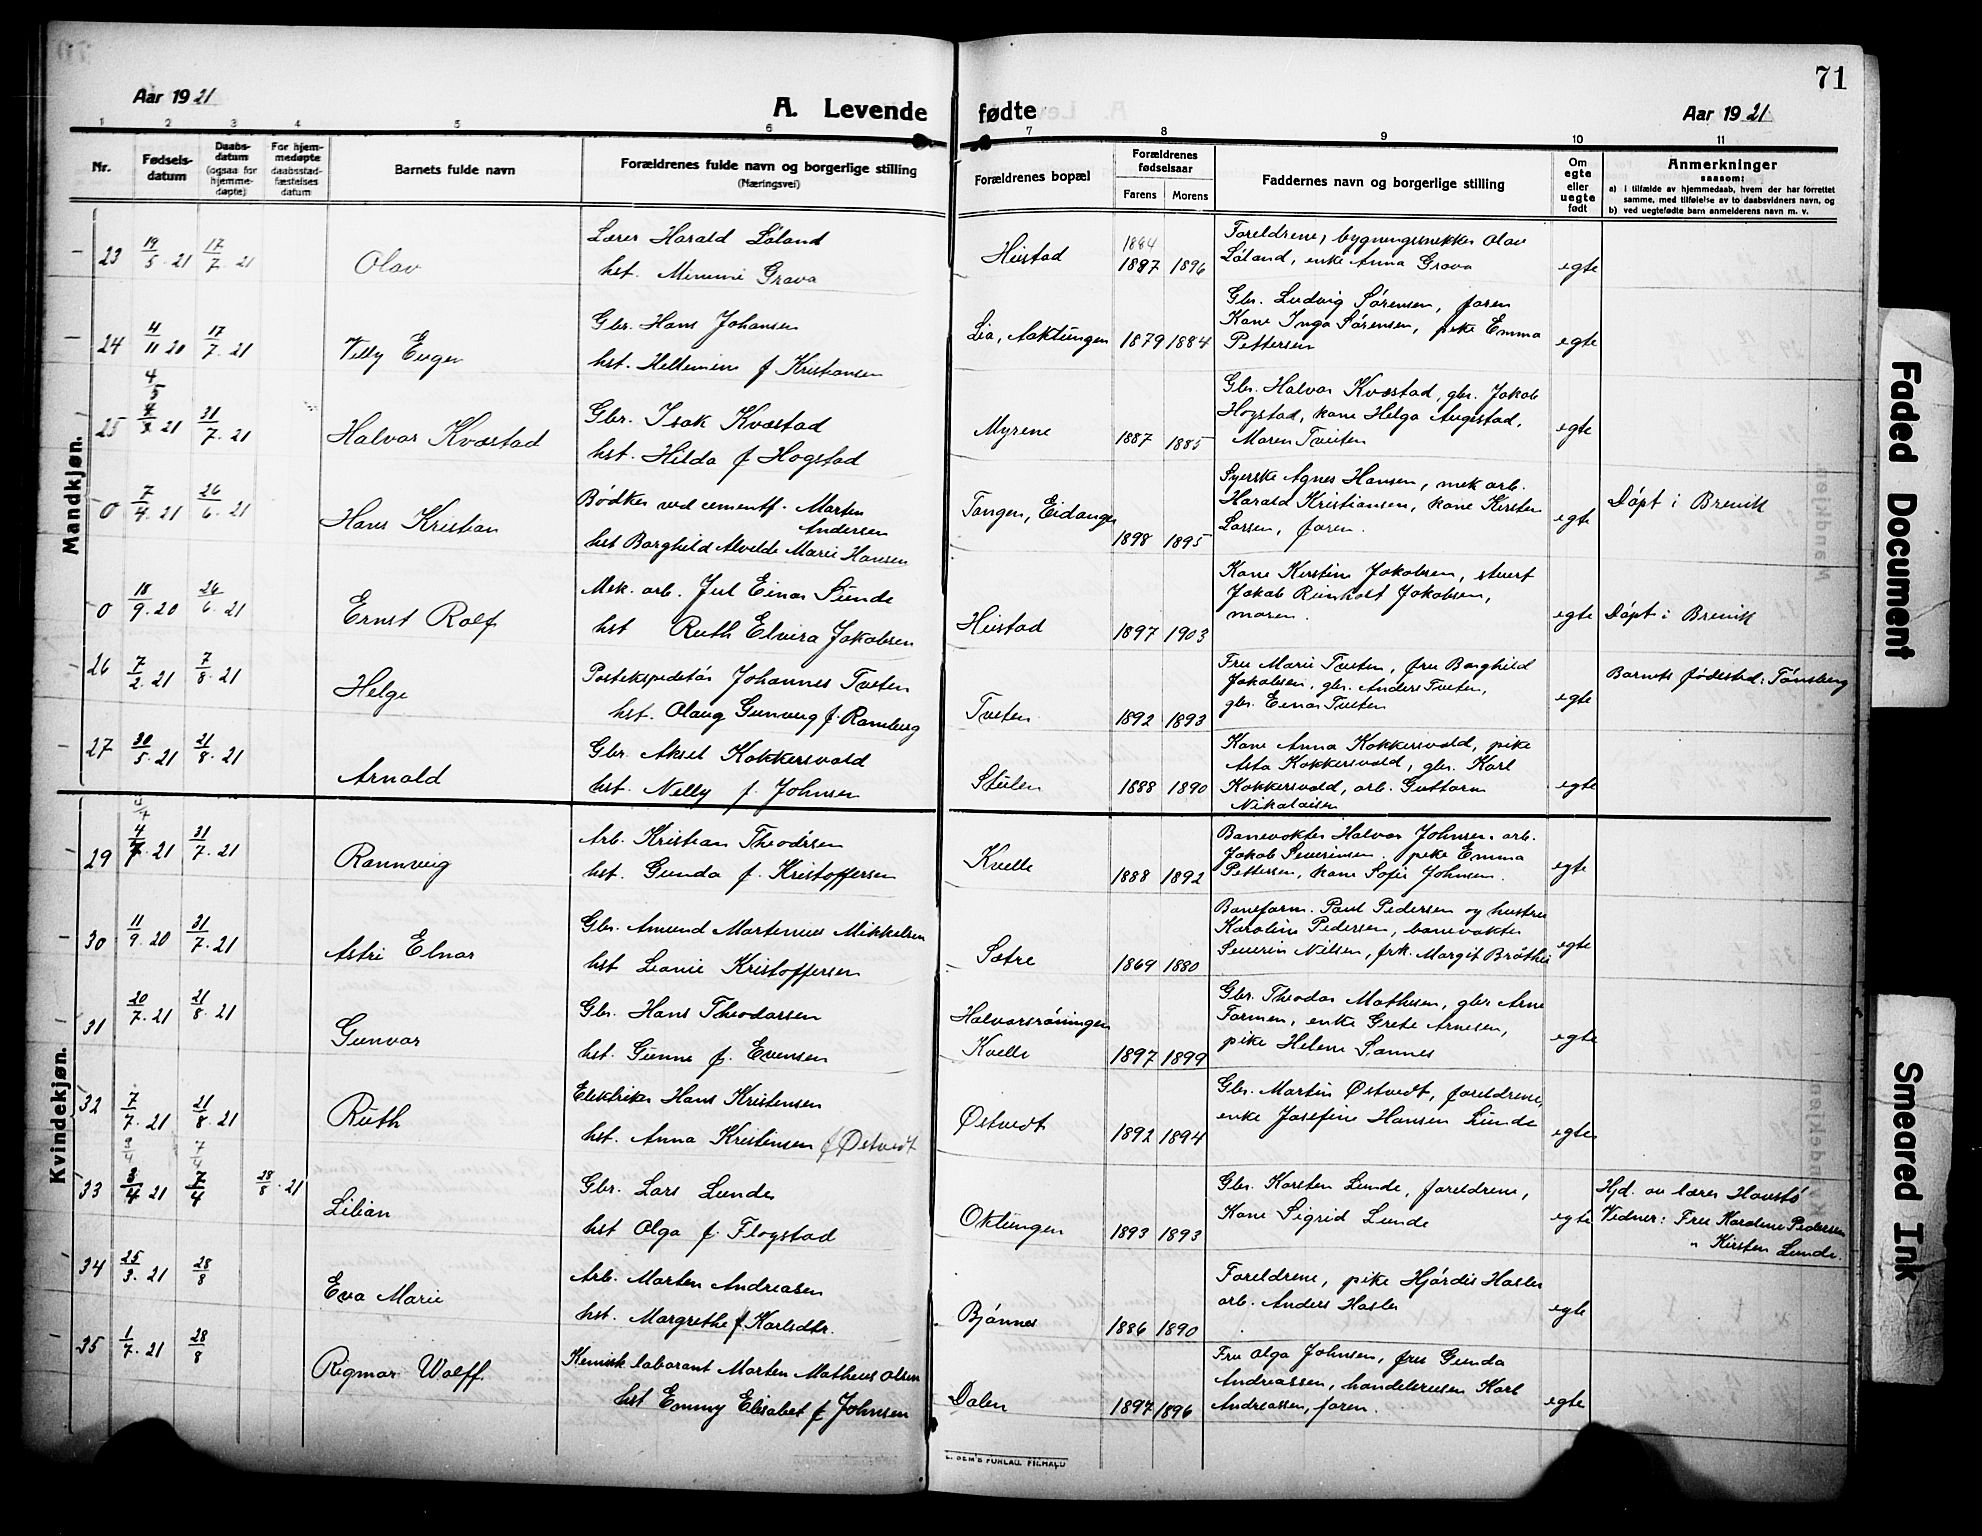 71
Aar 1921
A. Levende
fødte
Aar 1921
1 2 3 4 5 6 7 8 9 10 11
Nr.
Fødsels-
datum
Daabs-
datum
(ogsaa for
hjemme-
døpte)
For hjem-
medøpte
daabsstad-
fæstelses
datum
Barnets fulde navn
Forældrenes fulde navn og borgerlige stilling
(Næringsvei)
Forældrenes bopæl
Forældrenes
fødselsaar
Farens Morens
Faddernes navn og borgerlige stilling
Om
egte
eller
uegte
født
Anmerkninger
saasom:
a) i tilfælde av hjemmedaab, hvem der har forrettet
samme, med tilføielse av to daabsvidners navn, og
b) ved uegtefødte barn anmelderens navn m. v.
Mandkjøn.
23 19/5.21 17/7.21 Olav
Lærer Harald Løland
hst. Mimmi Grava
Heistad
1884
1887 1896
Foreldrene, bygningssnekker Olav
Løland, enke Anna Grava
egte
24 4/11 20 17/7.21 Villy Eugen
Gbr. Hans Johansen
hst. Heltemine f Kristiansen
Lia, Aaklungen 1879 1884
Gbr. Ludvig Sørensen, faren
Kone Inga Sørensen, pike Emma
Pettersen
egte
4/5
25 21 31/7.21 Halvor Kvæstad
Gbr. Isak Kvæstad
hst. Hilda f Hogstad
Myrene 1887 1885
Gbr. Halvor Kvæstad, gbr. Jakob
Hogstad, kone Helga Augestad,
Maren Tveten
egte
0 7/4.21 26/6.21 Hans Kristian
Bødker ved cementf. Marten
Andersen
hst Borghild Alvilde Marie Hansen
Tangen, Eidanger 1898 1895
Syerske Agnes Hansen, mek arb.
Harald Kristiansen, kone Kirsten
Larsen, faren.
egte
Døpt i Brevik
0 18/9.20 26/6.21 Ernst Rolf
Mek. arb. Jul Einar Sunde
hst Ruth Elvira Jakobsen
Heistad 1897 1903
Kone Kirstine Jakobsen, stuert
Jakob Reinholt Jakobsen,
moren.
egte
Døpt i Brevik
26 7/2.21 7/8.21 Helge
Postekspeditør Johannes Tveten
hst. Olaug Gunveig f. Ramberg
Tveten 1892 1893
Fru Marie Tveten, fru Borghild
Jakobsen, gbr. Anders Tveten,
gbr. Einar Tveten
egte
Barnets fødested: Tønsberg
27 30/5.21 21/8.21 Arnold
Gbr. Aksel Kokkersvold
hst. Nelly f. Johnsen
Stulen 1888 1890
Kone Anna Kokkersvold, pike
Asta Kokkersvold, gbr. Karl
Kokkersvold, arb. Guttorm
Nikolaisen
egte
Kvindekjøn.
29 21 31/7.21 Rannveig
Arb. Kristian Theodorsen
hst. Gunda f. Kristoffersen
Kvelle 1888 1892
Banevokter Halvor Johnsen, arb.
Jakob Severinsen, pike Emma
Pettersen, kone Sofie Johnsen.
egte
30 11/9.20 31/7.21 Astri Elnor
Gbr. Amund Martinius Mikkelsen
hst Leonie Kristoffersen
Sætre 1869 1880
Baneform. Paul Pedersen og hustru
Karoline Pedersen, banevokter
Severin Nilsen, frk. Margit
egte
31 20/7.21 21/8.21 Gunvor
Gbr. Hans Theodorsen
hst. Gunne f. Evensen
Halvorsrøningen
Kvelle 1897 1899
Gbr. Theodor Mathisen, gbr Arne
Tormen, enke Grete Arnesen,
pike Helene Sannes
egte
32 7/7.21 21/8.21 Ruth
Elektriker Hans Kristensen
hst. Anna Kristensen f Østvedt
Østvedt 1892 1894
Gbr. Martin Østvedt, foreldrene,
enke Josefine Hansen Lunde
egte
3/4 7/4
33 3/4 21 7/4 28/8.21 Lilian
Gbr. Lars Lunde
hst Olga f. Flogstad
Oklungen 1893 1893
Gbr. Karsten Lunde, foreldrene,
Kone Sigrid Lunde
egte
Hjd. av lærer Haustø
Vidner: Fru Karoline Pedersen
" Kirsten Lunde.
34 25/3.21 28/8 Eva Marie
Arb. Morten Andreasen
hst. Margrethe f. Karlsdtr.
Bjønnes 1886 1890
Foreldrene, pike Hjørdis Hasler
arb. Anders Hasler
egte
35 1/7.21 28/8 Rigmor Wolff.
Kemisk laborant Morten Matheus Olsen
hst Emmy Elisabet f Johnsen
Dalen 1897 1896
Fru Olga Johnsen, fru Gunda
Andreassen, handelsreisen Karl
Andreassen, faren.
egte
Faded Document
Smeared Ink